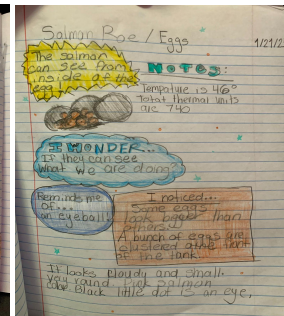 Salmon Roe / Eggs
1/21/2
The salmon
can see from
inside of the
egg.
NOTES:
Tempature is 46°
Total thermal units
are 740
I WONDER...
If they can see
what we are doing
Reminds me
of...
an eyeball!
I noticed...
Some eggs
look bigger than
others.
A bunch of eggs are
clustered at the front
of the tank.
It looks cloudy and small.
very round. Pink salmon
color. Black little dot is an eye.